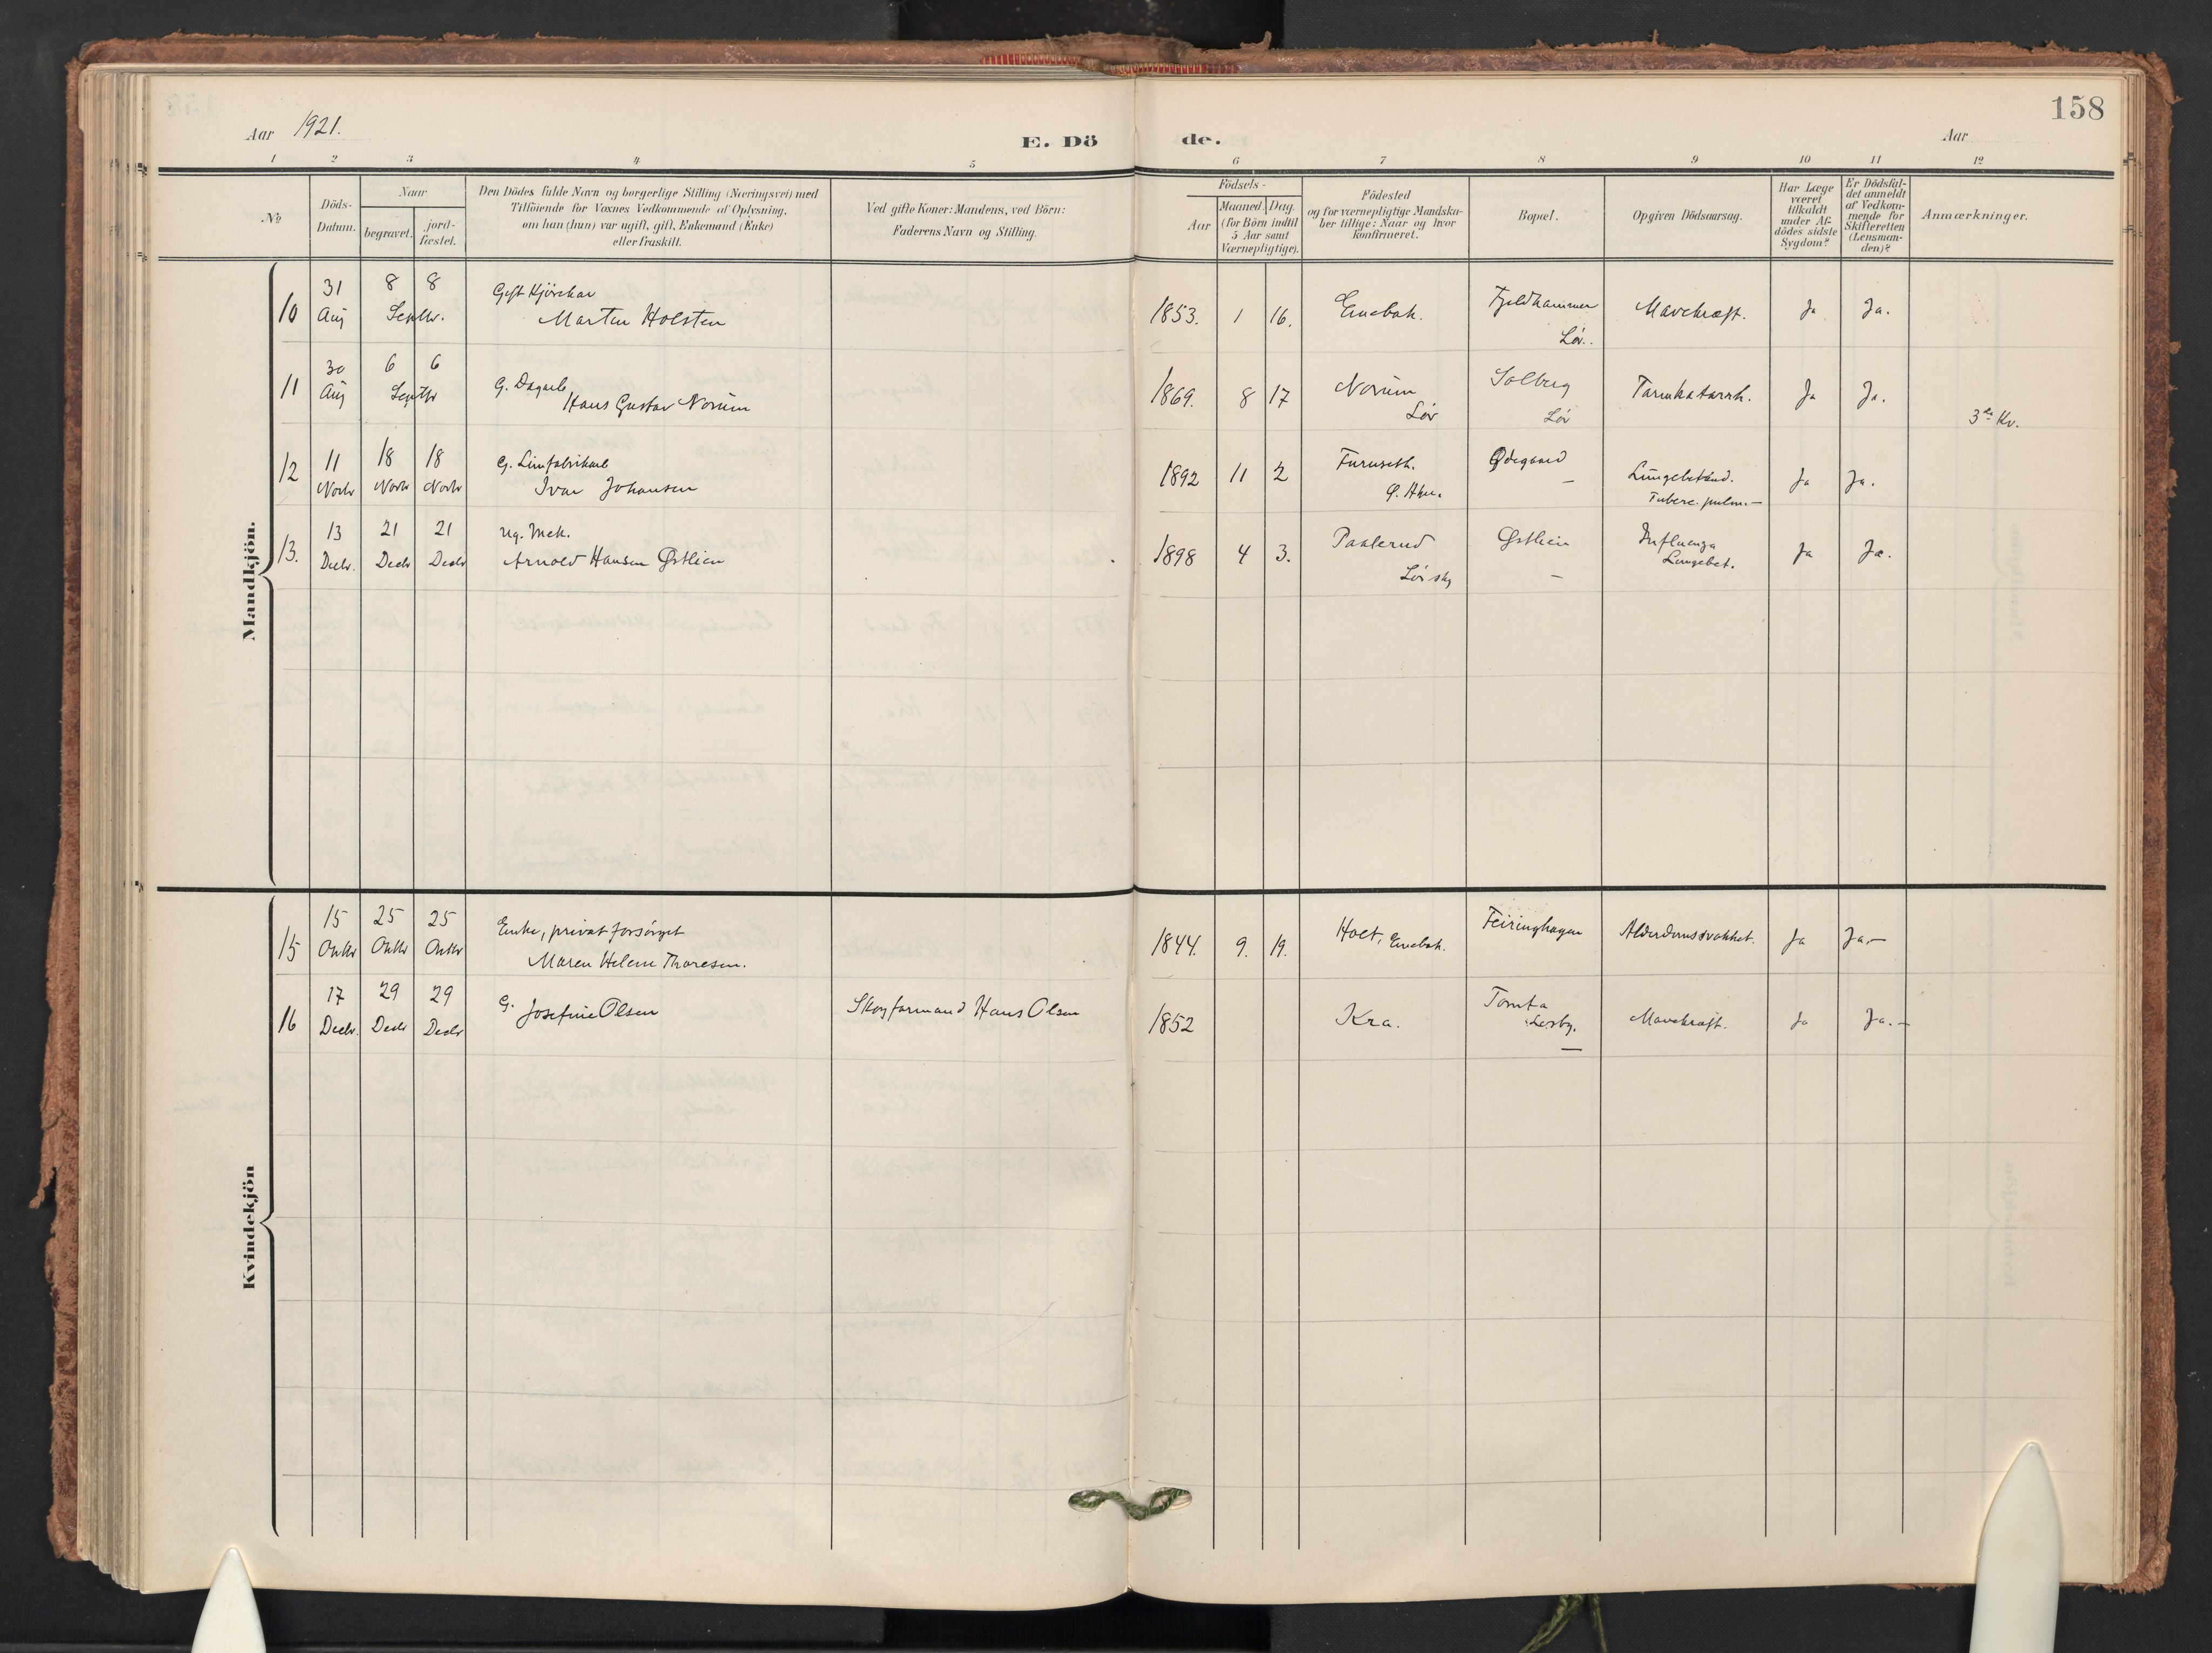 158
Aar 1921.
E. Dö de.
Aar
1 2 3 4 5 6 7 8 9 10 11 12
№
Döds-
Datum.
Naar
begravet.
jord-
fæstet.
Den Dödes fulde Navn og borgerlige Stilling (Næringsvei) med
Tilföiende for Voxnes Vedkommende af Oplysning,
om han (hun) var ugift, gift, Enkemand (Enke)
eller fraskilt.
Ved gifte Koner: Mandens, ved Börn:
Faderens Navn og Stilling.
Födsels-
Aar
Maaned. Dag.
(for Börn indtil
5 Aar samt
Værnepligtige).
Födested
og for værnepligtige Mandska-
ber tillige: Naar og hvor
konfirmeret.
Bopæl.
Opgiven Dödsaarsag.
Har Læge
været
tilkaldt
under Af-
dödes sidste
Sygdom?
Er Dödsfal-
det anmeldt
af Vedkom-
mende for
Skifteretten
(Lensman-
den)?
Anmærkninger.
Mandkjön.
10 31 Aug 8 8 Septbr.
Gift Kjørekar
Marten Holsten
1853. 1 16. Enebak. Fjeldhammer
Lør. Mavekræft. Ja Ja.
11 30 Aug 6 6 Septbr
G. Dagarb.
Hans Gustav Norum
1869. 8 17 Norum
Lør Solberg
Lør Tarmkatarrh. Ja Ja.
3die Kv.
12 11 Novbr 18 Novbr 18 Novbr
G. Limfabrikarb
Ivar Johansen
1892 11 2 Furuseth.
Ø. Aker. Ødegaard
— Lungebetænd.
Tuberc. pulm. — Ja Ja.
13. 13 Decbr. 21 Decbr 21 Decbr
Ug. Mek.
Arnold Hansen Østlien
1898 4 3. Paalerud
Lørsky Østlien
— Influenza
Lungebet. Ja Ja.
Kvindekjön
15 15 Oktbr 25 Oktbr 25 Oktbr
Enke, privat forsørget
Maren Helene Thoresen.
1844. 9. 19. Holt, Enebak. Feiringhagen Alderdomssvakhet. Ja Ja.—
16 17 Decbr. 29 Decbr 29 Decbr
G. Josefine Olsen Skogformand Hans Olsen
1852 Kra. Tomta
Losby.
— Mavekræft. Ja Ja.—